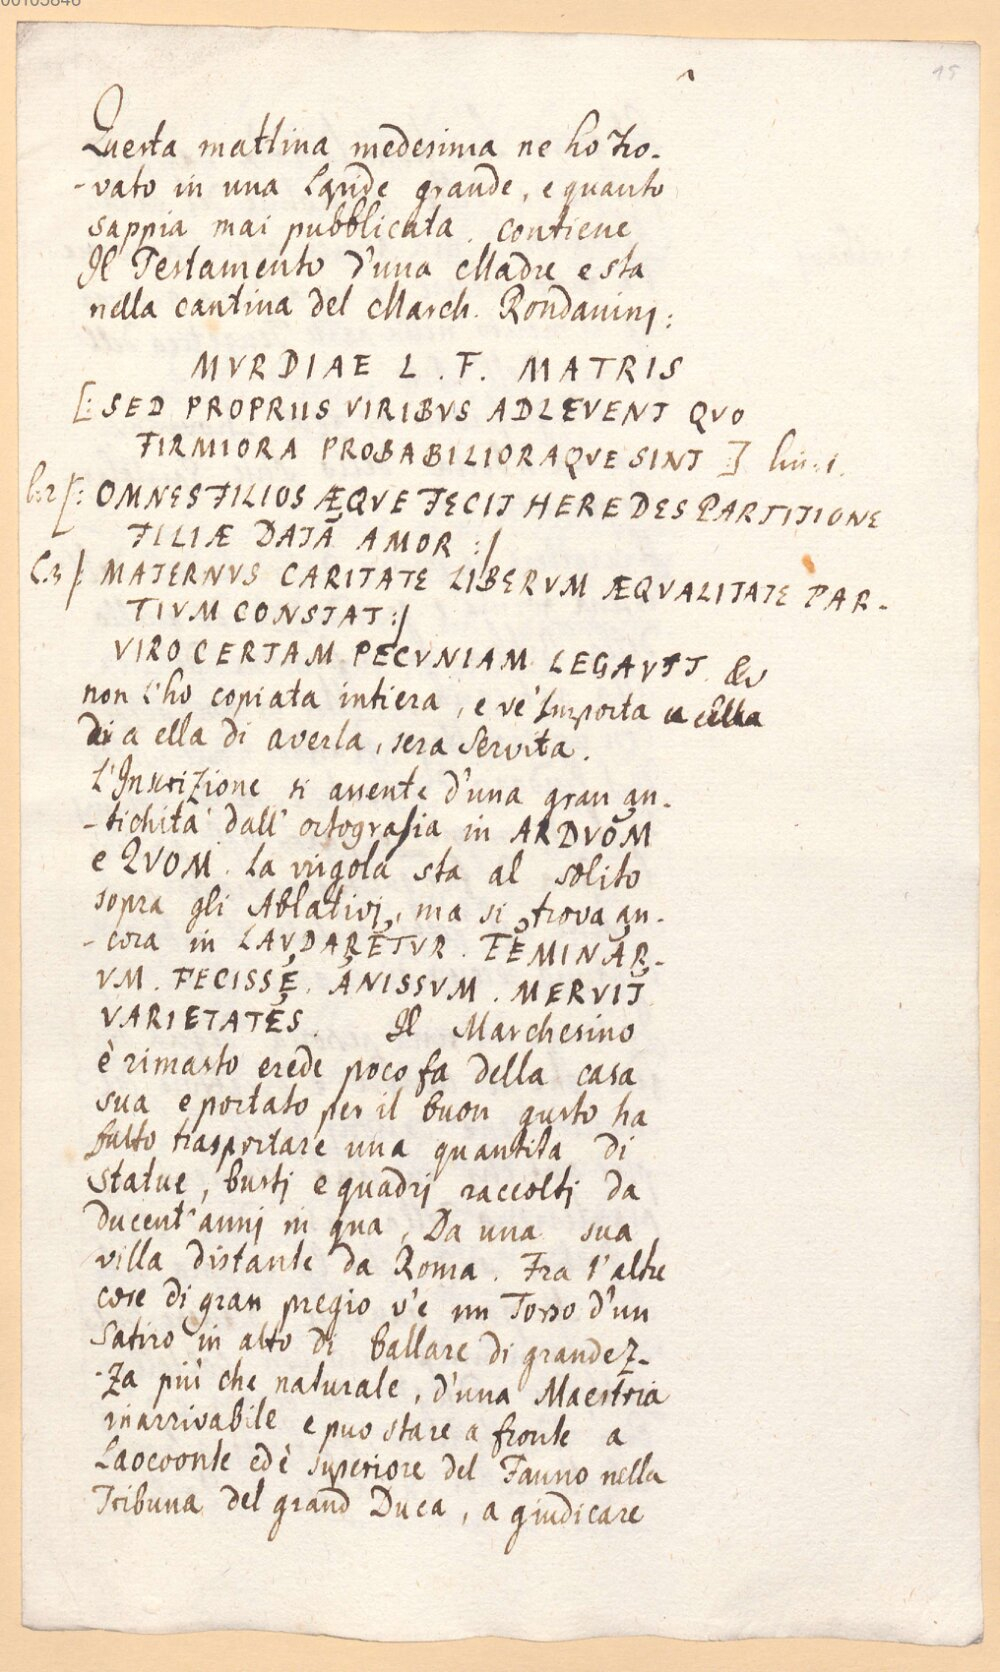 00105846
15
Questa mattina medesima ne ho tro-
-vato in una Lapide grande, e quanto
sappia mai pubblicata. contiene
Il Testamento d'una Madre e sta
nella cantina del March. Rondanini:
MVRDIAE L. F. MATRIS
[: SED PROPRIIS VIRIBVS ADLEVENT QVO
FIRMIORA PROBABILIORAQVE SINT :] lin. 1.
l. 2 [: OMNES FILIOS ÆQVE FECIT HEREDES PARTITIONE
FILIÆ DATA AMOR :/
l. 3 /: MATERNVS CARITATE LIBERVM ÆQVALITATE PAR-
TIVM CONSTAT :/
VIRO CERTAM PECVNIAM LEGAVIT &c
non l'ho copiata intiera, e se importa
a ella di averla, sera servita.
L'Inscrizione si avente d'una gran an-
-tichità dall' ortografia in ARDVOM
e QVOM. la virgola sta al solito
sopra gli Ablativi, ma si trova an-
-cora in LAVDARETVR. FEMINAR-
VM. FECISSE. ANISSVM. MERVIT
VARIETATES. Il Marchesino
è rimasto erede poco fa della casa
sua e portato per il buon gusto ha
fatto trasportare una quantita di
Statue, busti e quadri raccolti da
ducent'anni in qua, Da una sua
villa distante da Roma. Fra l'altre
cose di gran pregio v'e un Torso d'un
Satiro in atto di ballare di grandez-
-za più che naturale, d'una Maestria
inarrivabile e puo stare a fronte a
Laocoonte ed è superiore del Fauno nella
Tribuna del grand Duca, a giudicare